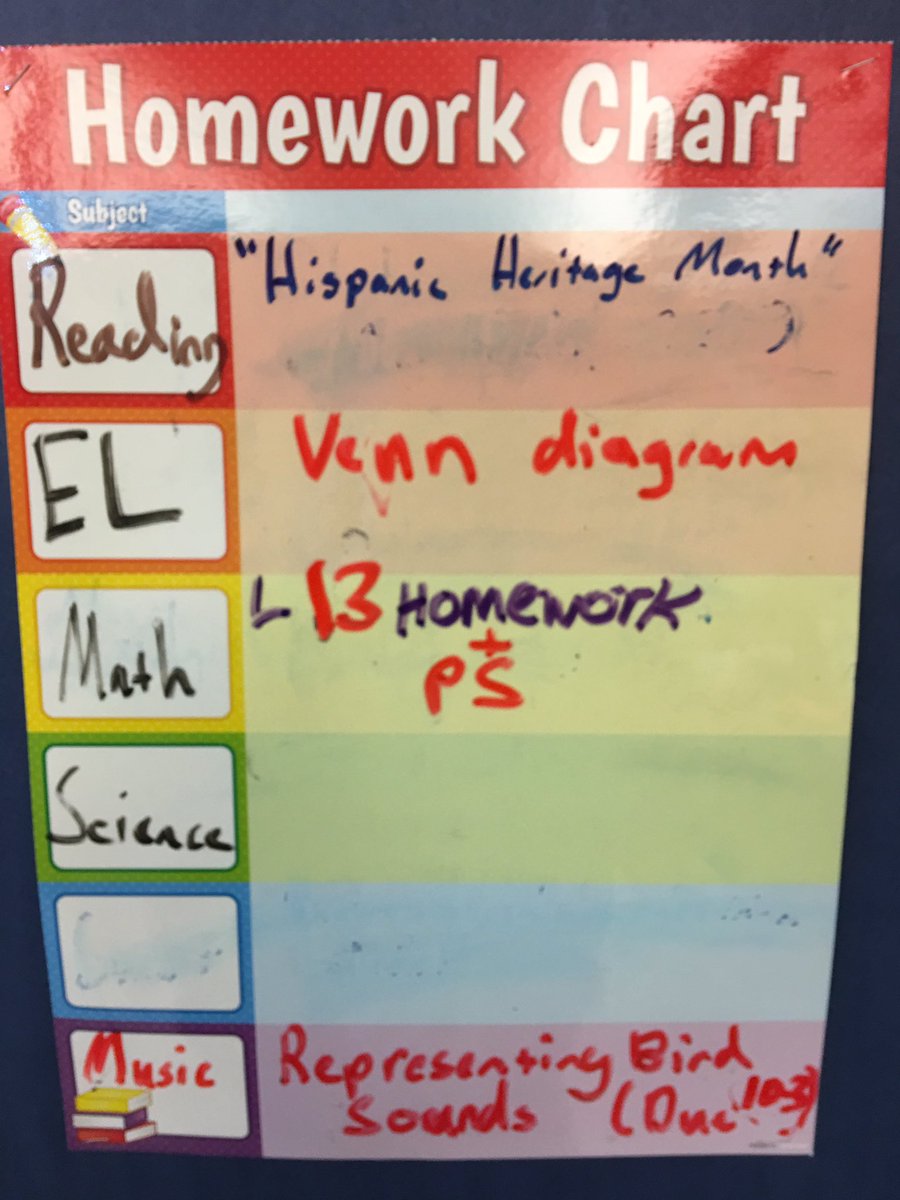 Homework Chart
Subject
Reading
"Hispanic Heritage Month"
EL
Venn diagram
Math
L 13 Homework
+
PS
Science
Music
Representing Bird
Sounds (Due 10-3)